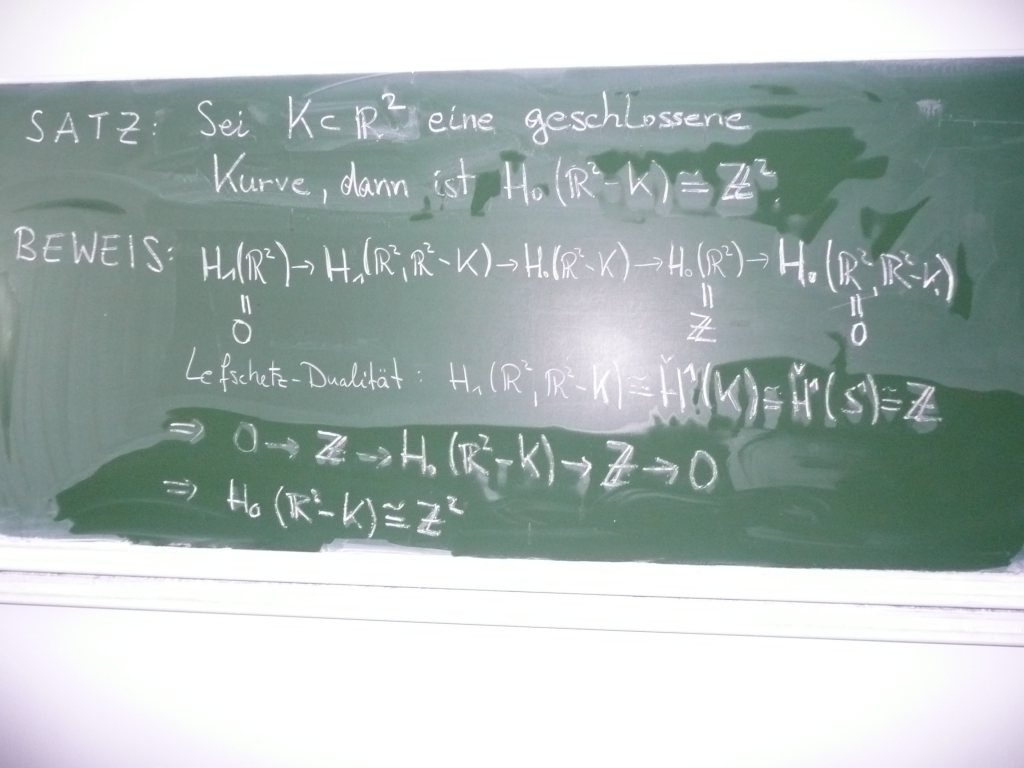 SATZ: Sei K ⊂ ℝ² eine geschlossene
Kurve, dann ist H₀(ℝ²-K) ≅ ℤ².
BEWEIS: H₁(ℝ²) → H₁(ℝ²,ℝ²-K) → H₀(ℝ²-K) → H₀(ℝ²) → H₀(ℝ²,ℝ²-K)
= = =
0 ℤ 0
Lefschetz-Dualität: H₁(ℝ²,ℝ²-K) ≅ Ȟ¹(K) ≅ Ȟ¹(S¹) ≅ ℤ
⇒ 0 → ℤ → H₀(ℝ²-K) → ℤ → 0
⇒ H₀(ℝ²-K) ≅ ℤ²